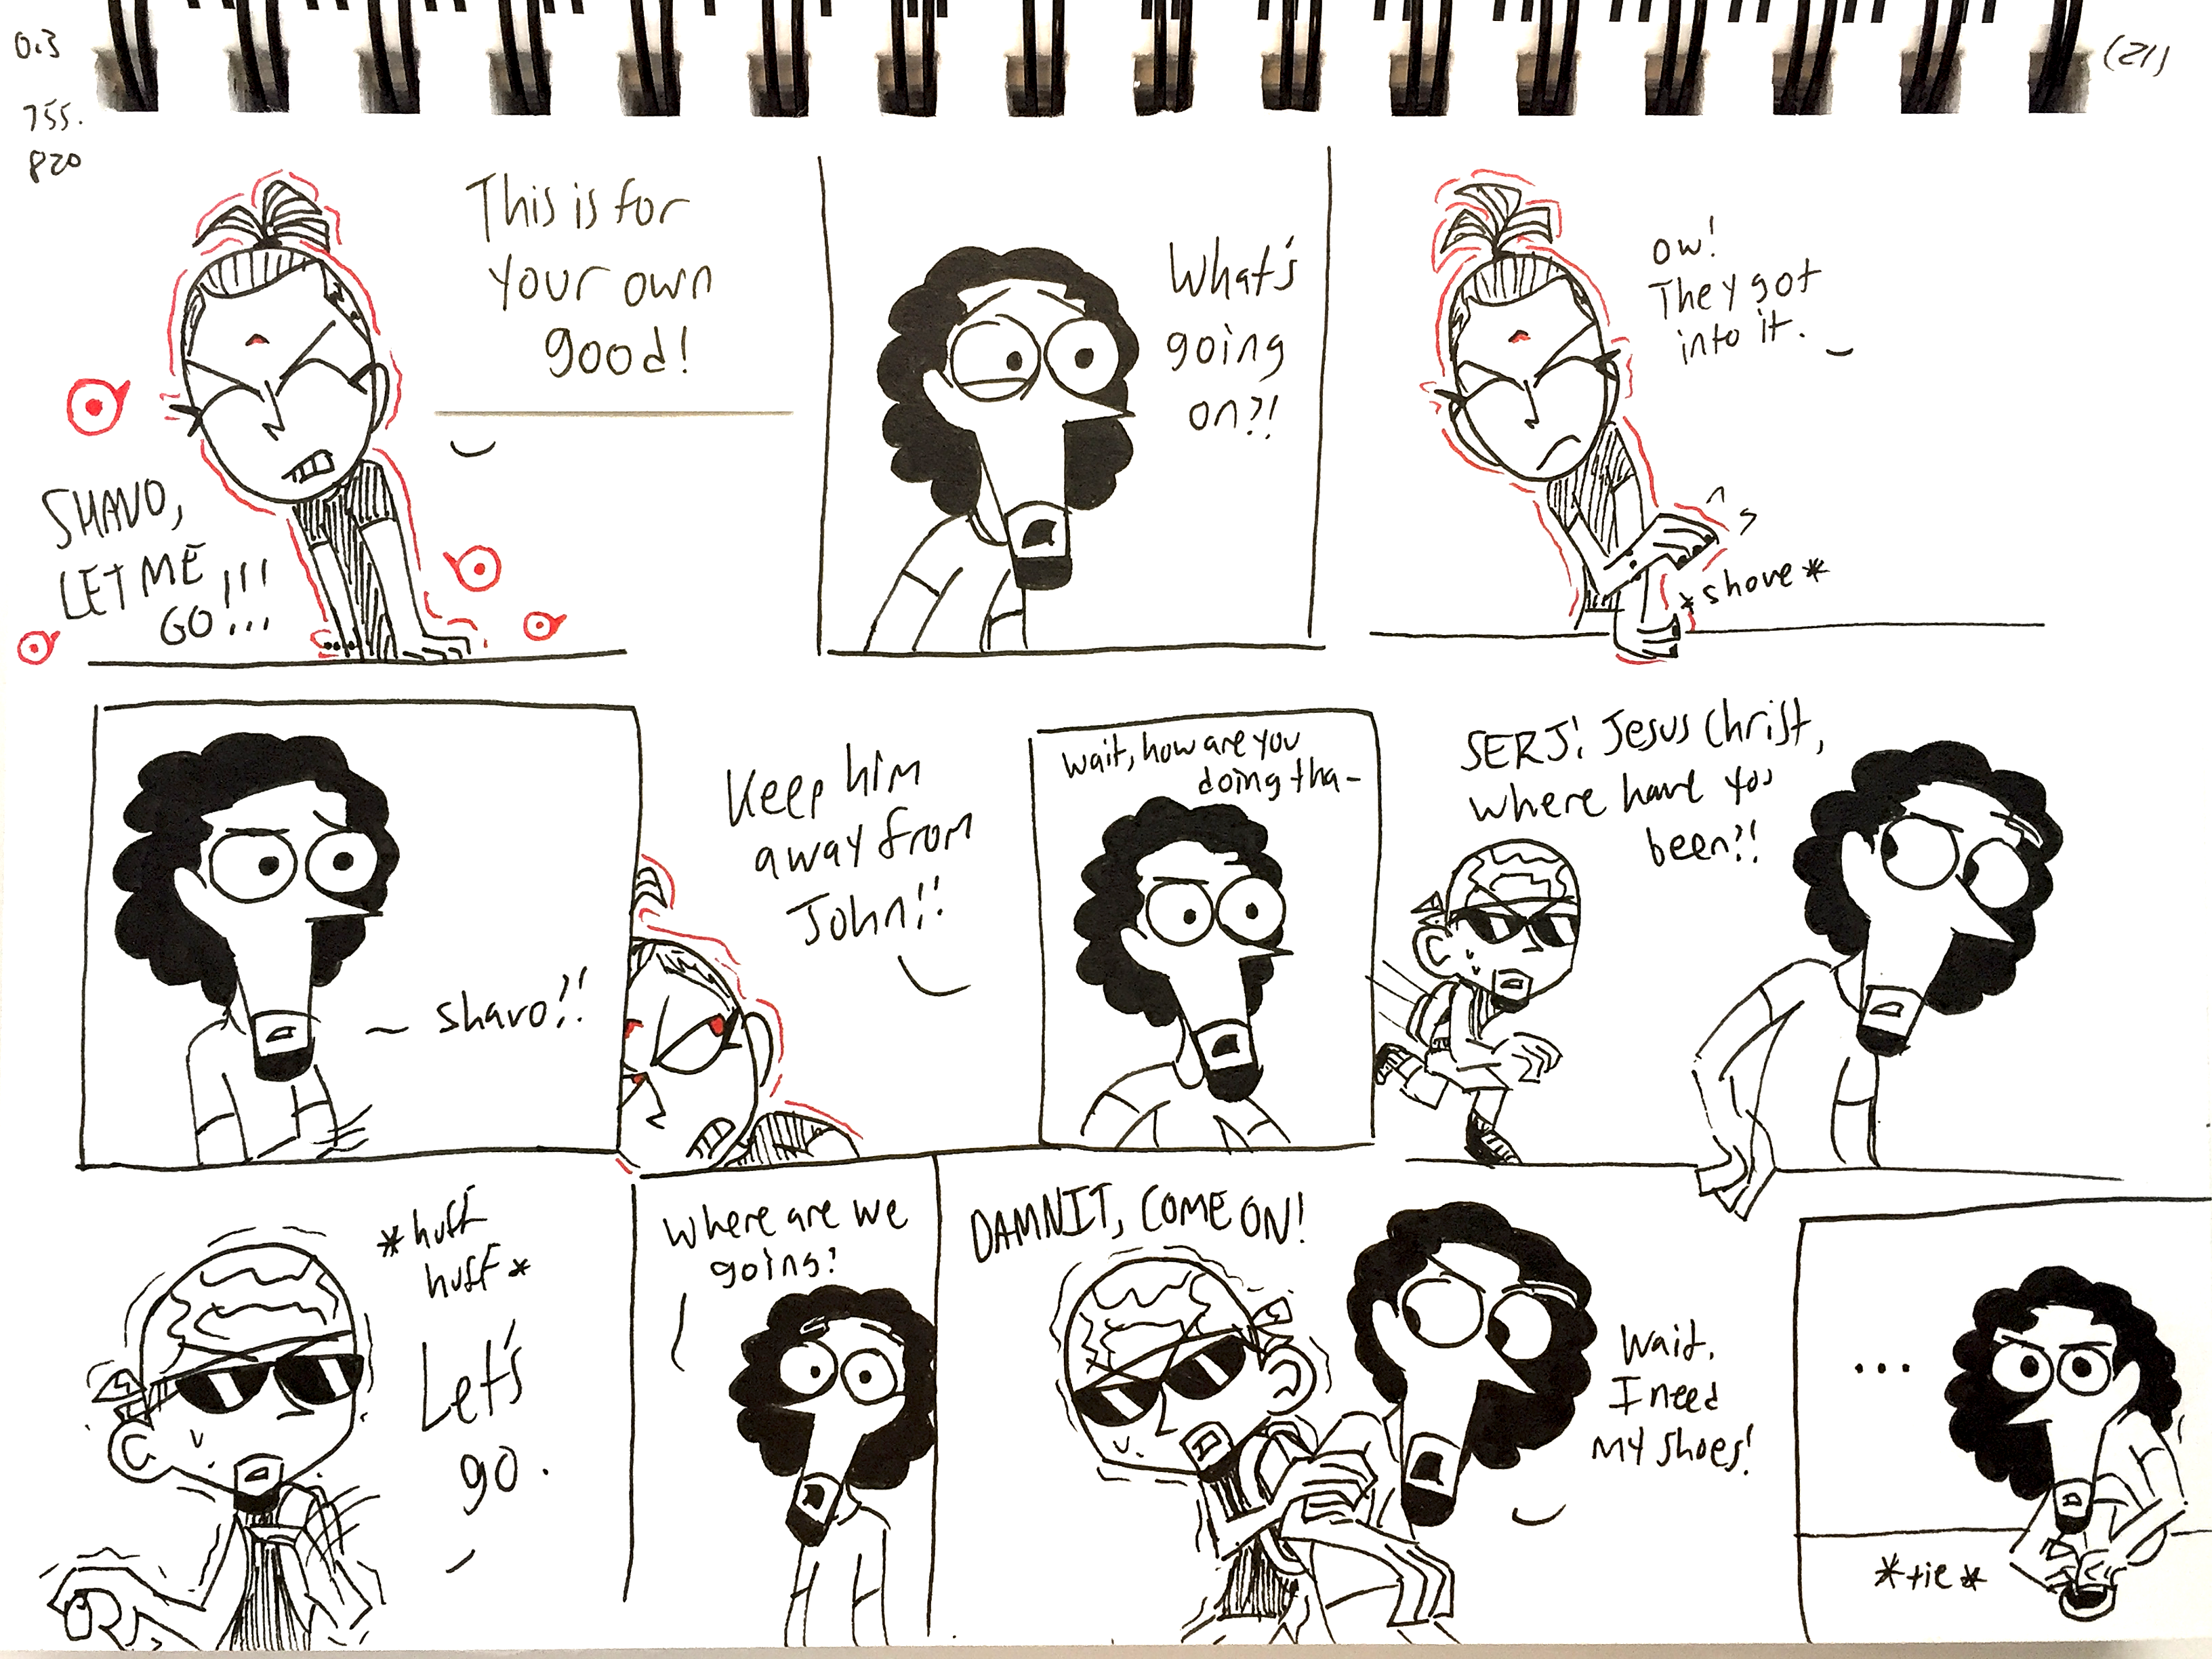 0.3
755.
820
(21)
This is for
your own
good!
SHAVO,
LET ME
GO!!!
What's
going
on?!
ow!
They got
into it.
*shove*
shavo!!
Keep him
away from
John!!
Wait, how are you
doing tha-
SERJ! Jesus Christ,
where have you
been?!
*huff
huff*
Let's
go.
Where are we
going?
DAMNIT, COME ON!
Wait.
I need
my shoes!
...
*tie*